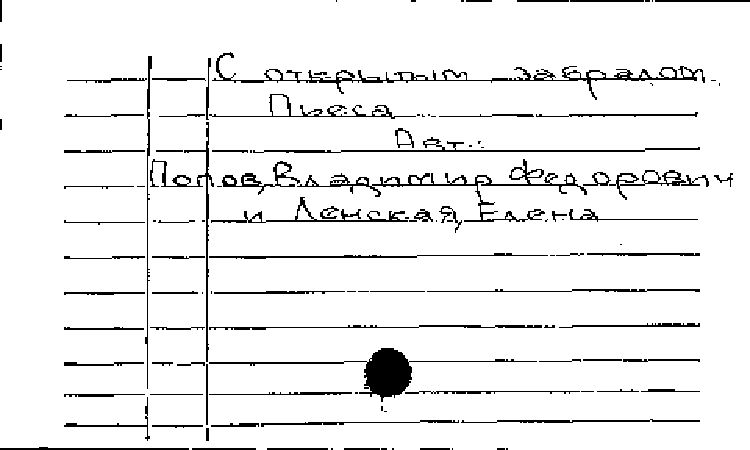 С открытым забралом.
Пьеса
Авт.:
Попов, Владимир Федорович
и Ленская, Елена